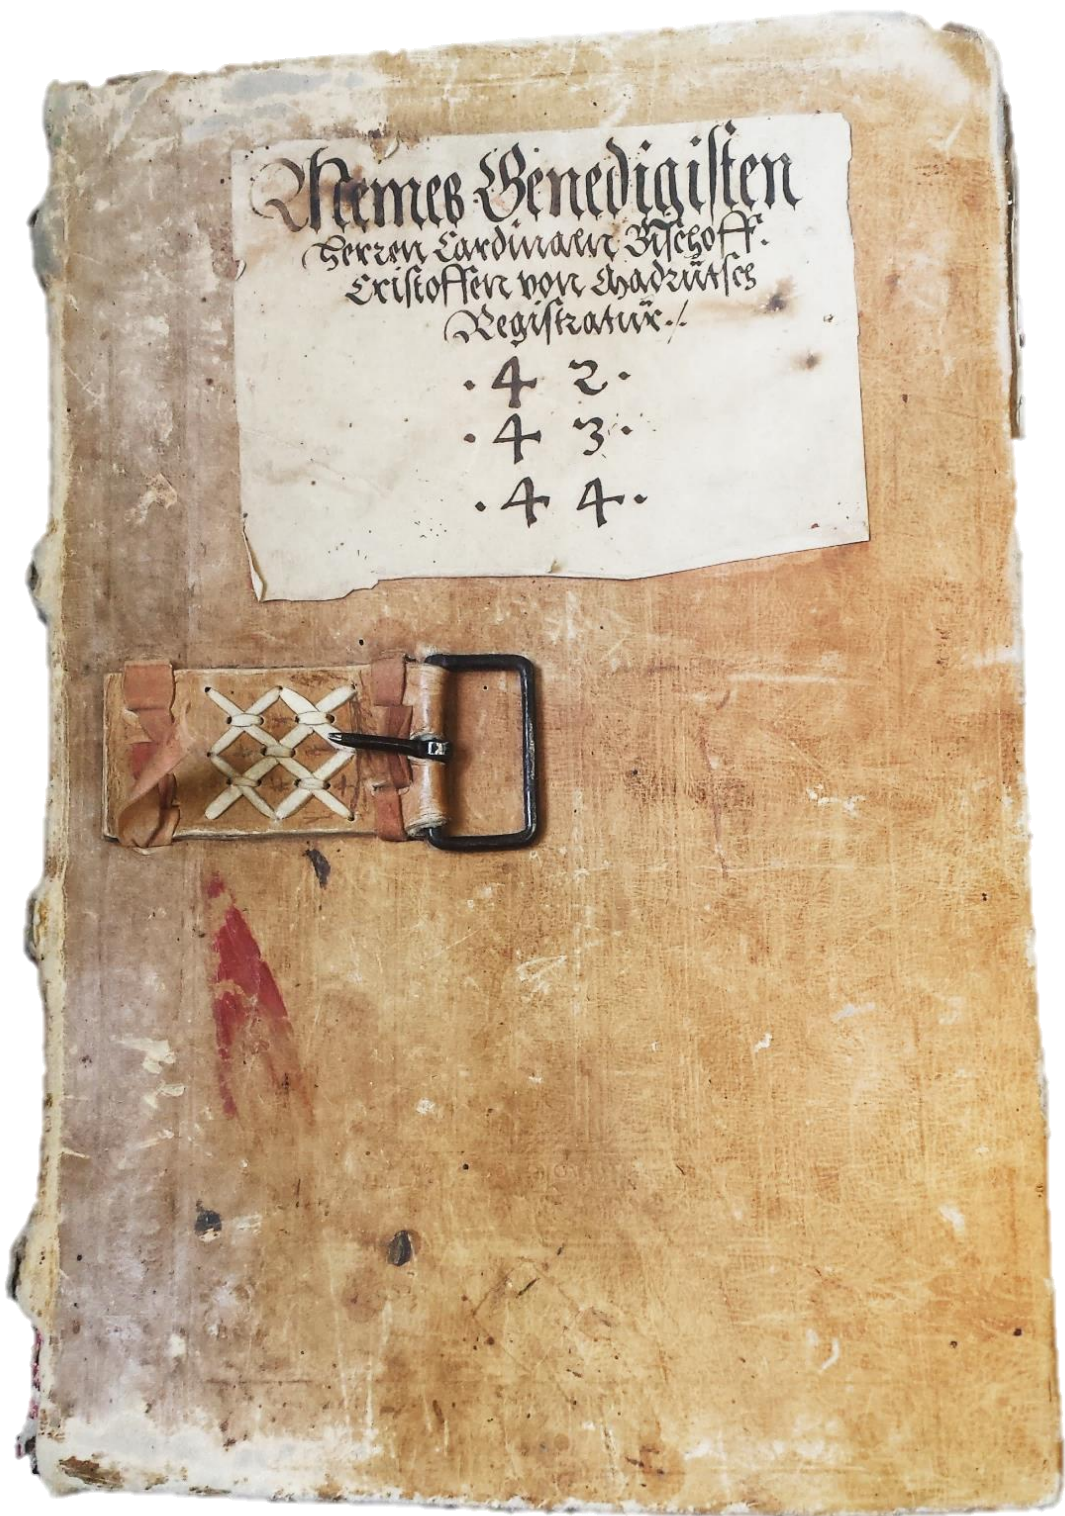 Meines Genedigisten
Herren Cardinaln Bischoff.
Cristoffen von Madrutsch
Registratur ./.
. 4 2 .
. 4 3 .
. 4 4 .